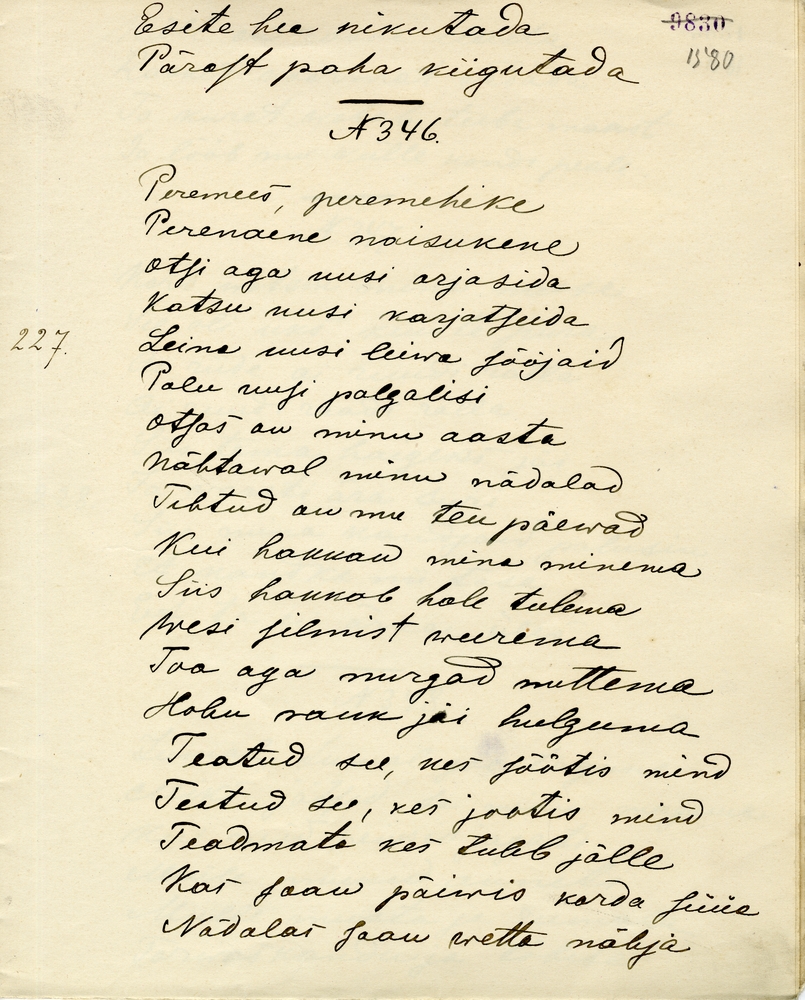 Esite hee nikutada
9830
1580
Pärast paha kiigutada
N 346.
Peremees, peremehike
Perenaene naisukene
Otsi aga uusi orjasida
Katsu uusi karjatseida
227.
Leina uusi leiwa sööjaid
Palu uusi palgalisi
Otsas on minu aasta
Nähtawal minu nädalad
Tehtud on mu teu päewad
Kui hakkan mina minema
Siis hakkab hale tulema
Wesi silmist weerema
Toa aga nurgad nuttema
Hobu rauk jäi hulguma
Teatud see, kes söötis mind
Teatud see, kes jootis mind
Teadmata kes tuleb jälle
Kas saan päiwis korda süüa
Nädalas saan wetta nähja